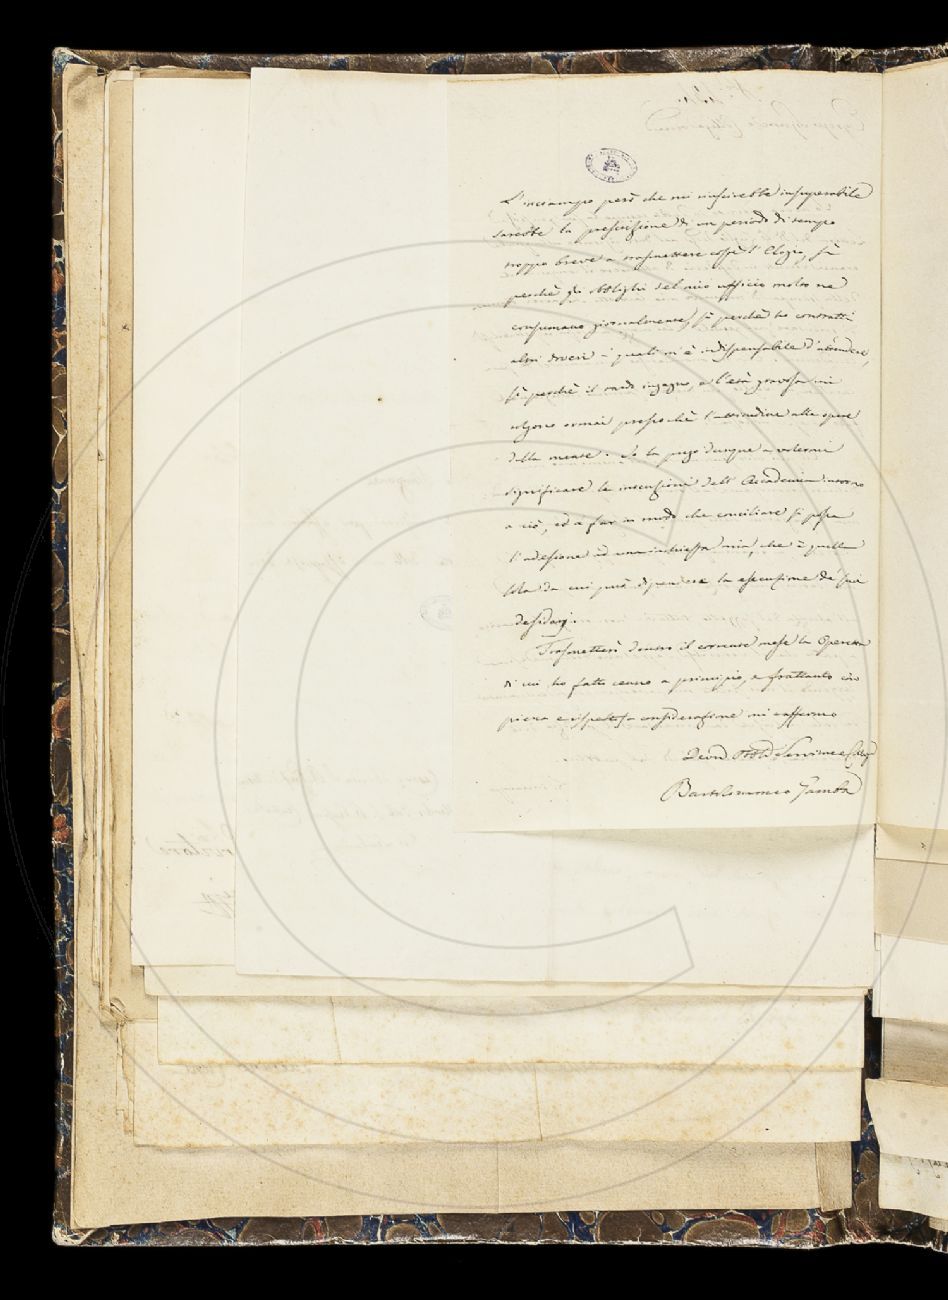 L'inciampo però che mi riuscirebbe insuperabile
sarebbe la prescrizione di un periodo di tempo
troppo breve a trasmettere costì l'Elogio, sì
perchè gli obblighi del mio uffizio molto ne
consumano giornalmente, sì perchè ho contratti
altri doveri a' quali m'è indispensabile d'attendere,
sì perchè il tardo ingegno, e l'età gravosa mi
tolgono ormai pressochè l'attitudine alle opere
della mente. Io la prego dunque a volermi
significare le intenzioni dell'Accademia intorno
a ciò, ed a far in modo che conciliare si possa
l'adesione ad una inchiesta mia, che è quella
sola da cui può dipendere la esecuzione de' suoi
desiderj.
Trasmetterò dentro il corrente mese la Operetta
di cui ho fatto cenno a principio, e frattanto con
piena e rispettosa considerazione mi raffermo
Servitore e
Bartolommeo Gamba